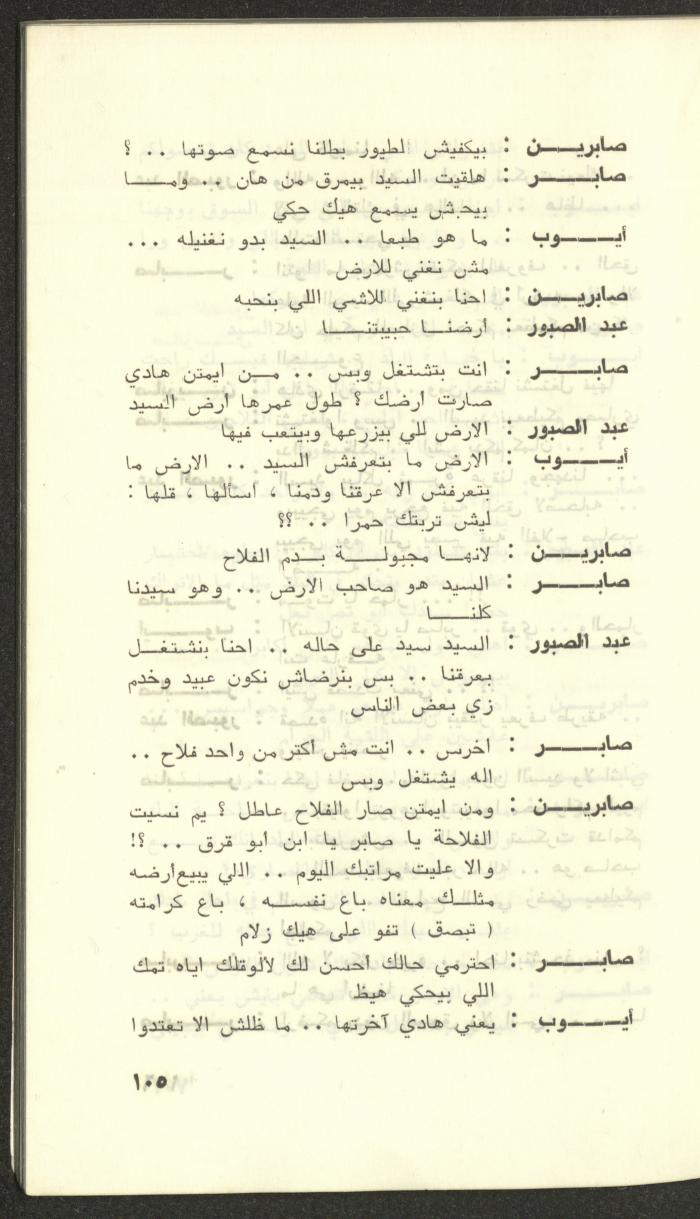 صابريـــن : بيكفيش الطيور بطلنا نسمع صوتها .. ؟
صابـــــر : هلقيت السيد بيمرق من هان .. ومـــا
بيحش يسمع هيك حكي
أيـــــوب : ما هو طبعا .. السيد بدو نغنيله ...
مش نغني للارض
صابريـــن : احنا بنغني للاشي اللي بنحبه
عبد الصبور : أرضنـــا حبيبتنـــا
صابـــــر : انت بتشتغل وبس .. مـــن ايمتن هادي
صارت أرضك ؟ طول عمرها أرض السيد
عبد الصبور : الارض للي بيزرعها وبيتعب فيها
أيـــــوب : الارض ما بتعرفش السيد .. الارض ما
بتعرفش الا عرقنا ودمنا ، اسألها ، قلها :
ليش تربتك حمرا .. ؟؟
صابريـــن : لانهـــا مجبولـــة بـــدم الفلاح
صابـــــر : السيد هو صاحب الارض .. وهو سيدنا
كلنـــا
عبد الصبور : السيد سيد على حاله .. احنا بنشتغـــل
بعرقنا .. بس بنرضاش نكون عبيد وخدم
زي بعض الناس
صابـــــر : اخرس .. انت مش أكتر من واحد فلاح ..
اله يشتغل وبس
صابريـــن : ومن ايمتن صار الفلاح عاطل ؟ يم نسيت
الفلاحة يا صابر يا ابن ابو قرق .. ؟!
والا عليت مراتبك اليوم .. اللي يبيع أرضه
مثلـــك معناه باع نفســـه ، باع كرامته
( تبصق ) تفو على هيك زلام
صابـــــر : احترمي حالك أحسن لك لألوقلك اياه تمك
اللي بيحكي هيظ
أيـــــوب : يعني هادي آخرتها .. ما ظلش الا تعتدوا
١٠٥